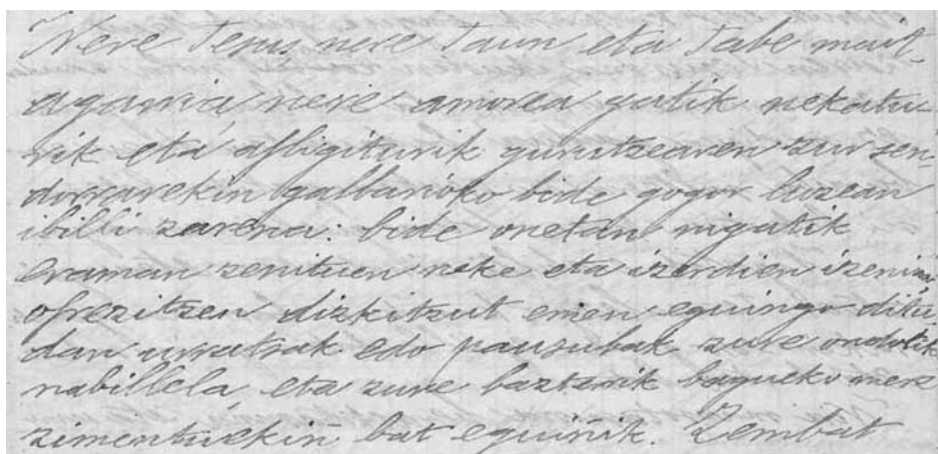 Nere Jesus, nere Jaun eta Jabe mait-
agarria, nere amorea gatik nekatu-
rik eta afligiturik gurutzearen zur sen-
dorrarekin galbarioko bide gogor luzean
ibilli zarena: bide onetan nigatik
eraman zenituen neke eta izerdien izenian
ofrezitzen dizkitzut emen eguingo ditu-
dan urratsak edo pausubak zure ondotik
nabillela, eta zure baztarik bagueko mere
zimentuekin bat eguiñik. Zembat